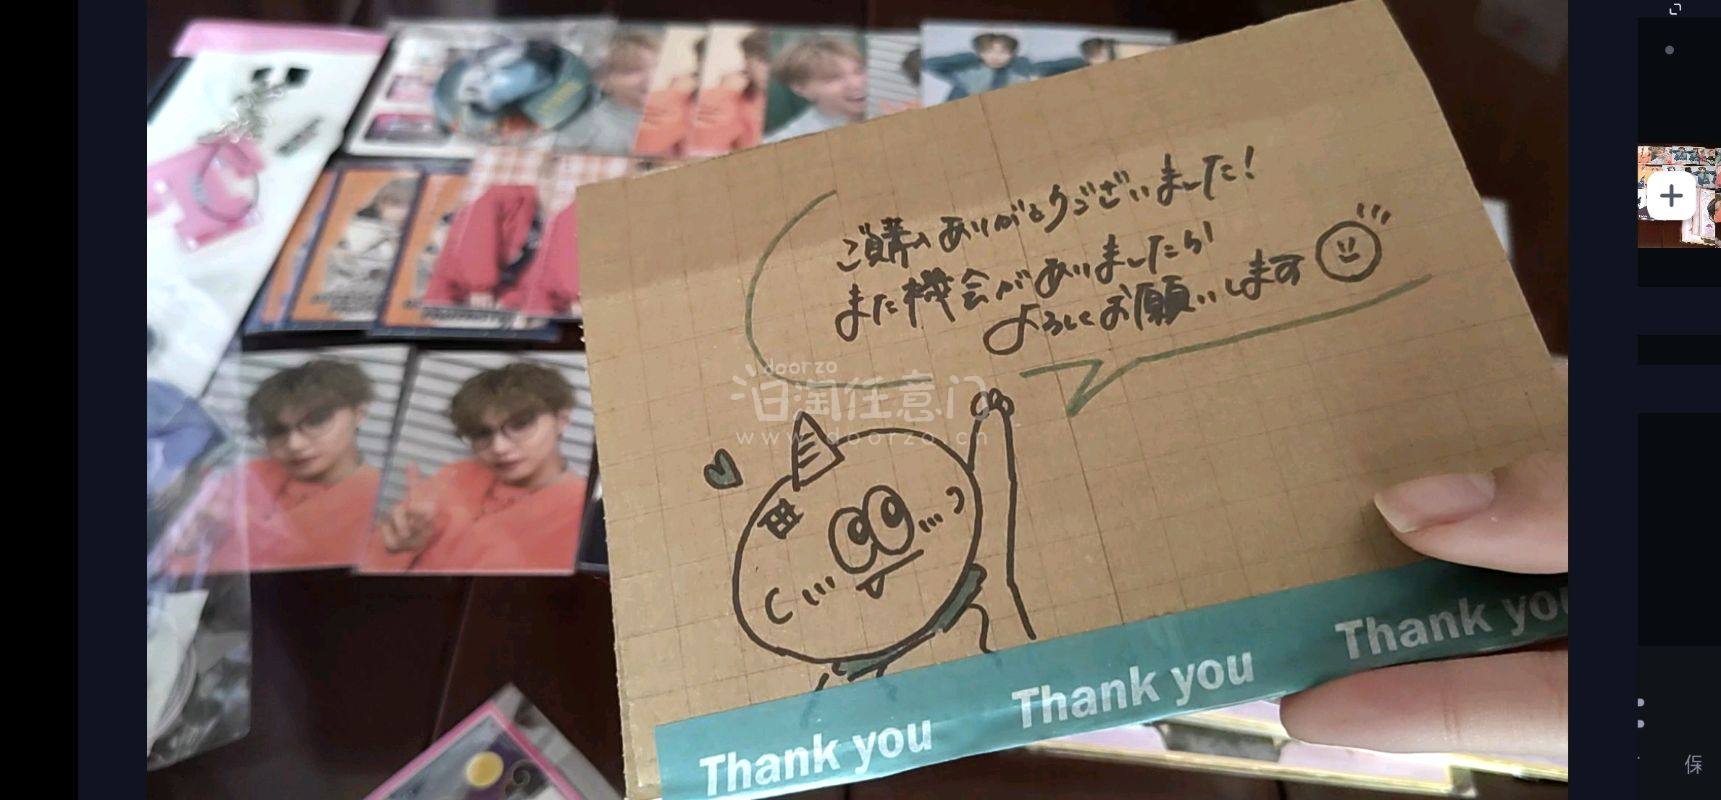 ご購入ありがとうございました!
また機会がありましたら
よろしくお願いします
doorzo
泊淘任意门
www.doorzo.cn
Thank you
Thank you
Thank you
保